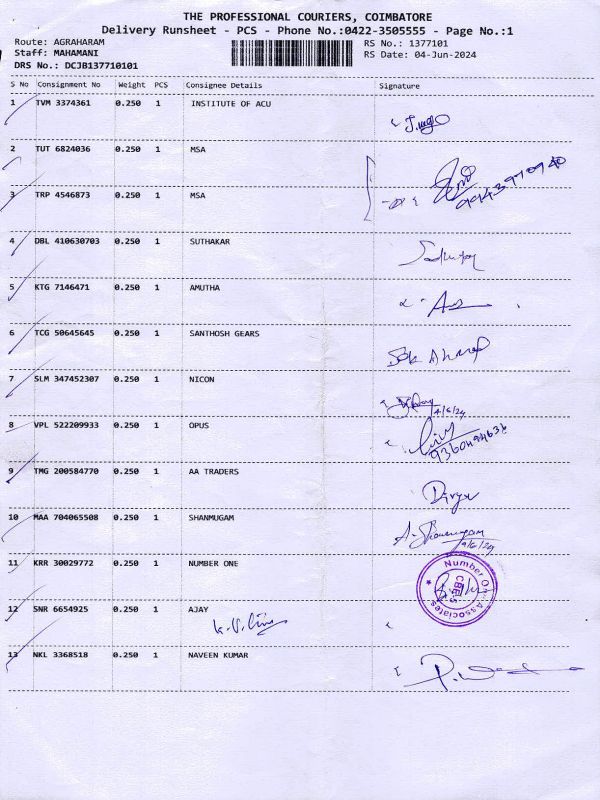 THE PROFESSIONAL COURIERS, COIMBATORE
Delivery Runsheet - PCS - Phone No.:0422-3505555 - Page No.:1
Route: AGRAHARAM RS No.: 1377101
Staff: MAHAMANI RS Date: 04-Jun-2024
DRS No.: DCJB137710101
S No Consignment No Weight PCS Consignee Details Signature
1 TVM 3374361 0.250 1 INSTITUTE OF ACU
2 TUT 6824036 0.250 1 MSA
3 TRP 4546873 0.250 1 MSA
4 DBL 410630703 0.250 1 SUTHAKAR
5 KTG 7146471 0.250 1 AMUTHA
6 TCG 50645645 0.250 1 SANTHOSH GEARS
7 SLM 347452307 0.250 1 NICON
4/6/24
8 VPL 522209933 0.250 1 OPUS
9360494636
9 TMG 200584770 0.250 1 AA TRADERS
Divya
10 MAA 704065508 0.250 1 SHANMUGAM
A. Shanmugam
11 KRR 30029772 0.250 1 NUMBER ONE
Number One Associates
CBE-5
12 SNR 6654925 0.250 1 AJAY
13 NKL 3368518 0.250 1 NAVEEN KUMAR